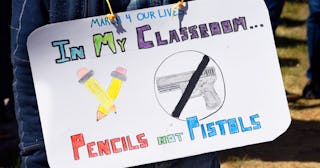 MARCH 4 OUR LIVES
IN MY CLASSROOM...
PENCILS NOT PISTOLS